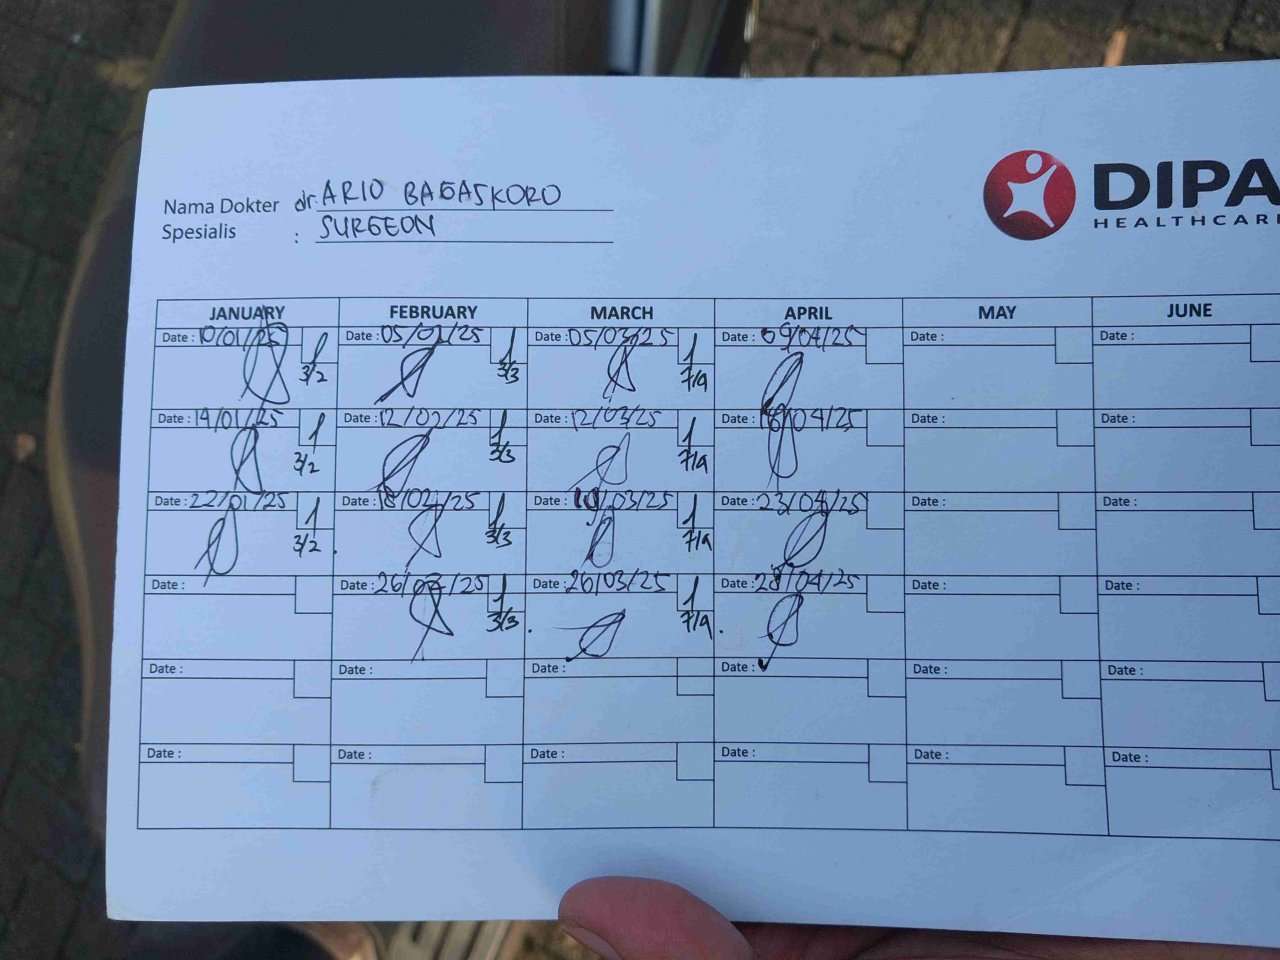 Nama Dokter dr. ARIO BAGASKORO
Spesialis : SURGEON
DIPA
HEALTHCAR
JANUARY FEBRUARY MARCH APRIL MAY JUNE
Date : 10/01/25 1 Date : 05/02/25 1 Date : 05/03/25 1 Date : 09/04/25 Date : Date :
3/2 3/3 7/a
Date : 14/01/25 1 Date : 12/02/25 1 Date : 12/03/25 1 Date : 16/04/25 Date : Date :
3/2 3/3 7/a
Date : 22/01/25 1 Date : 18/02/25 1 Date : 19/03/25 1 Date : 23/04/25 Date : Date :
3/2 3/3 7/a
Date : Date : 26/02/25 1 Date : 26/03/25 1 Date : 28/04/25 Date : Date :
3/3 7/a
Date : Date : Date : Date : Date : Date :
Date : Date : Date : Date : Date : Date :